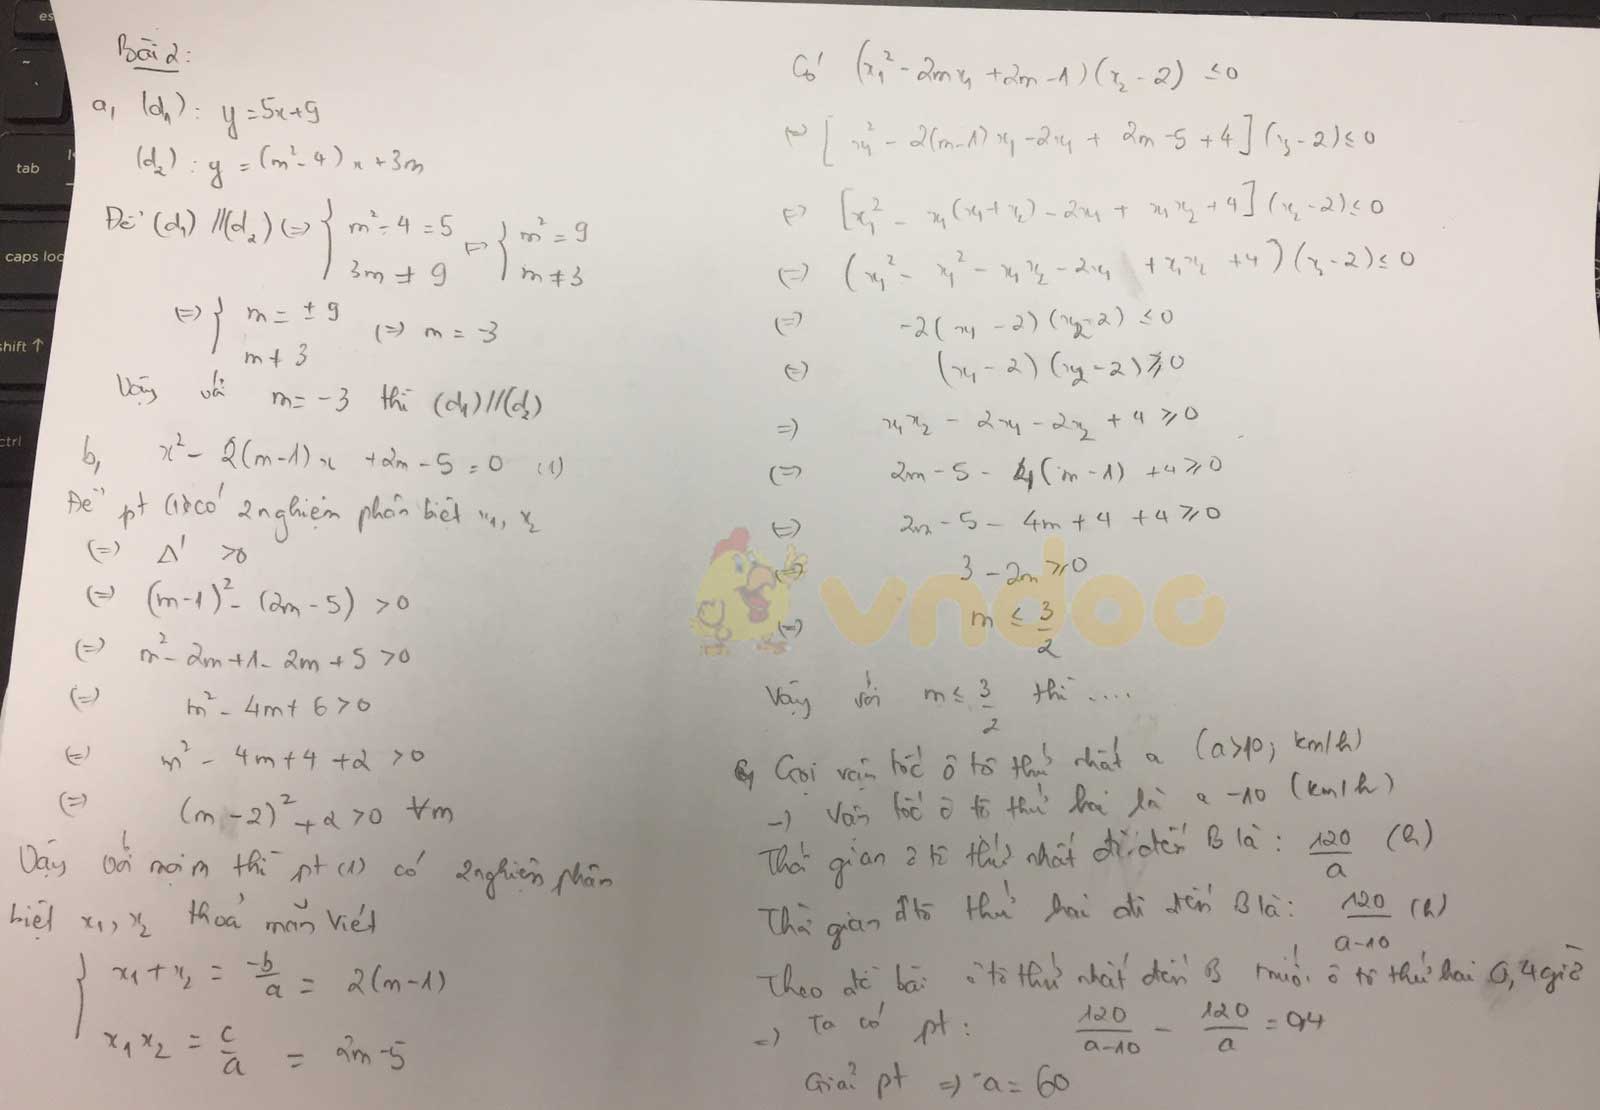 Bài 2:
a, (d₁): y = 5x+9
(d₂): y = (m²-4)x + 3m
Để (d₁) // (d₂) (=) { m²-4 = 5 ; 3m ≠ 9 (=) { m² = 9 ; m ≠ 3
(=) { m = ± 9 ; m ≠ 3 (=) m = -3
Vậy với m = -3 thì (d₁)//(d₂)
b, x² - 2(m-1)x + 2m - 5 = 0 (1)
Để pt (1) có 2 nghiệm phân biệt x₁, x₂
(=) Δ' > 0
(=) (m-1)² - (2m-5) > 0
(=) m² - 2m + 1 - 2m + 5 > 0
(=) m² - 4m + 6 > 0
(=) m² - 4m + 4 + 2 > 0
(=) (m-2)² + 2 > 0 ∀m
Vậy với mọi m thì pt (1) có 2 nghiệm phân
biệt x₁, x₂ thoả mãn Viét
{ x₁ + x₂ = -b/a = 2(m-1)
x₁x₂ = c/a = 2m-5
Có (x₁² - 2mx₁ + 2m - 1)(x₂ - 2) ≤ 0
(=) [x₁² - 2(m-1)x₁ - 2x₁ + 2m - 5 + 4](x₂ - 2) ≤ 0
(=) [x₁² - x₁(x₁+x₂) - 2x₁ + x₁x₂ + 4](x₂ - 2) ≤ 0
(=) (x₁² - x₁² - x₁x₂ - 2x₁ + x₁x₂ + 4)(x₂ - 2) ≤ 0
(=) -2(x₁ - 2)(x₂ - 2) ≤ 0
(=) (x₁ - 2)(x₂ - 2) ≥ 0
=) x₁x₂ - 2x₁ - 2x₂ + 4 ≥ 0
(=) 2m - 5 - 4(m-1) + 4 ≥ 0
(=) 2m - 5 - 4m + 4 + 4 ≥ 0
(=) 3 - 2m ≥ 0
(=) m ≤ 3/2
vndoc
Vậy với m ≤ 3/2 thì ....
Gọi vận tốc ô tô thứ nhất a (a>10; km/h)
-) Vận tốc ô tô thứ hai là a - 10 (km/h)
Thời gian ô tô thứ nhất đi đến B là: 120/a (h)
Thời gian ô tô thứ hai đi đến B là: 120/(a-10) (h)
Theo đề bài ô tô thứ nhất đến B trước ô tô thứ hai 0,4 giờ
=) Ta có pt: 120/(a-10) - 120/a = 0,4
Giải pt =) a = 60